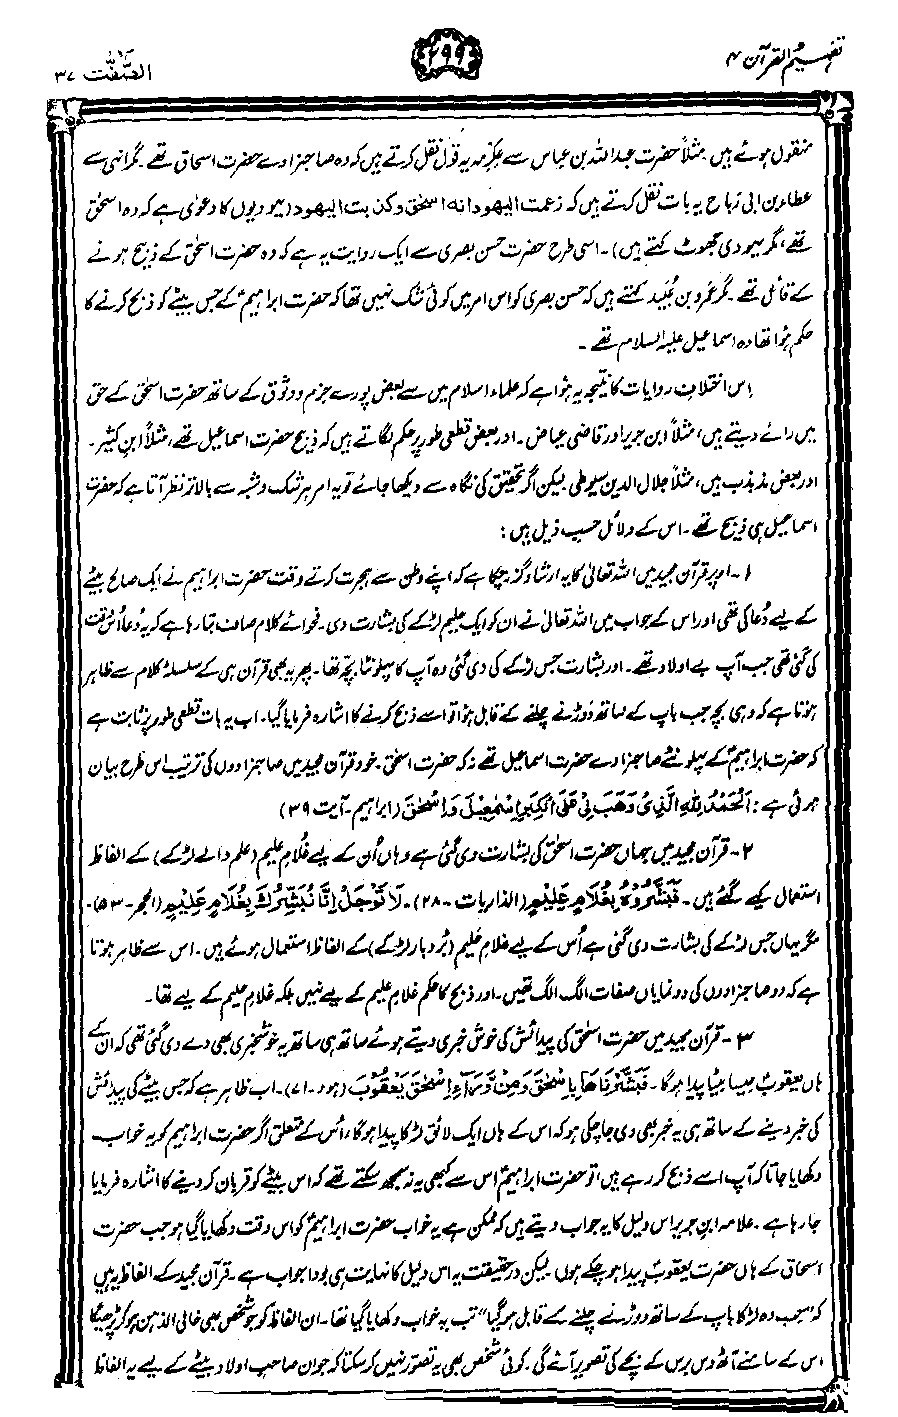 تفہیم القرآن ۴
۲۹۹
الصّٰفّٰت ۳۷
منقول ہوئے ہیں۔ مثلاً حضرت عبداللہ بن عباس سے عکرمہ یہ قول نقل کرتے ہیں کہ وہ صاحبزادے حضرت اسحاق تھے۔ مگر انہی سے
عطاء بن ابی رباح یہ بات نقل کرتے ہیں کہ زعمت الیھود انہ اسحٰق وکذبت الیھود (یہودیوں کا دعویٰ ہے کہ وہ اسحٰق
تھے، مگر یہودی جھوٹ کہتے ہیں)۔ اسی طرح حضرت حسن بصری سے ایک روایت یہ ہے کہ وہ حضرت اسحٰق کے ذبیح ہونے
کے قائل تھے۔ مگر عمرو بن عُبَید کہتے ہیں کہ حسن بصری کو اس امر میں کوئی شک نہیں تھا کہ حضرت ابراہیمؑ کے جس بیٹے کو ذبح کرنے کا
حکم ہوا تھا وہ اسماعیل علیہ السلام تھے۔
اِس اختلافِ روایات کا نتیجہ یہ ہوا ہے کہ علماء اسلام میں سے بعض پورے جزم و وثوق کے ساتھ حضرت اسحٰق کے حق
میں رائے دیتے ہیں، مثلاً ابن جریر اور قاضی عیاض۔ اور بعض قطعی طور پر حکم لگاتے ہیں کہ ذبیح حضرت اسماعیل تھے، مثلاً ابنِ کثیر۔
اور بعض مذبذب ہیں، مثلاً جلال الدین سیوطی۔ لیکن اگر تحقیق کی نگاہ سے دیکھا جائے تو یہ امر ہر شک و شبہ سے بالاتر نظر آتا ہے کہ حضرت
اسماعیل ہی ذبیح تھے۔ اس کے دلائل حسبِ ذیل ہیں:
۱۔ اوپر قرآن مجید میں اللہ تعالیٰ کا یہ ارشاد گزر چکا ہے کہ اپنے وطن سے ہجرت کرتے وقت حضرت ابراہیم نے ایک صالح بیٹے
کے لیے دُعا کی تھی اور اس کے جواب میں اللہ تعالیٰ نے ان کو ایک حلیم لڑکے کی بشارت دی۔ فحوائے کلام صاف بتا رہا ہے کہ یہ دُعا اُس وقت
کی گئی تھی جب آپ بے اولاد تھے۔ اور بشارت جس لڑکے کی دی گئی وہ آپ کا پہلونٹا بچّہ تھا۔ پھر یہ بھی قرآن ہی کے سلسلۂ کلام سے ظاہر
ہوتا ہے کہ وہی بچہ جب باپ کے ساتھ دَوڑنے چلنے کے قابل ہوا تو اسے ذبح کرنے کا اشارہ فرمایا گیا۔ اب یہ بات قطعی طور پر ثابت ہے
کہ حضرت ابراہیمؑ کے پہلونٹے صاحبزادے حضرت اسماعیل تھے نہ کہ حضرت اسحٰق۔ خود قرآن مجید میں صاحبزادوں کی ترتیب اس طرح بیان
ہوئی ہے: اَلْحَمْدُ لِلّٰهِ الَّذِىْ وَهَبَ لِىْ عَلَى الْكِبَرِ اِسْمٰعِيْلَ وَاِسْحٰقَ (ابراہیم۔ آیت ۳۹)
۲۔ قرآن مجید میں جہاں حضرت اسحٰق کی بشارت دی گئی ہے وہاں اُن کے لیے غُلامِ علیم (علم والے لڑکے) کے الفاظ
استعمال کیے گئے ہیں۔ فَبَشَّرُوْهُ بِغُلَامٍ عَلِيْمٍ (الذاریات۔ ۲۸)۔ لَا تَوْجَلْ اِنَّا نُبَشِّرُكَ بِغُلَامٍ عَلِيْمٍ (الحجر۔ ۵۳)۔
مگر یہاں جس لڑکے کی بشارت دی گئی ہے اُس کے لیے غلامِ حَلِیم (بُردبار لڑکے) کے الفاظ استعمال ہوئے ہیں۔ اس سے ظاہر ہوتا
ہے کہ دو صاحبزادوں کی دو نمایاں صفات الگ الگ تھیں۔ اور ذبح کا حکم غلامِ علیم کے لیے نہیں بلکہ غلامِ حلیم کے لیے تھا۔
۳۔ قرآن مجید میں حضرت اسحٰق کی پیدائش کی خوش خبری دیتے ہوئے ساتھ ہی ساتھ یہ خوشخبری بھی دے دی گئی تھی کہ ان کے
ہاں یعقوبؑ جیسا بیٹا پیدا ہوگا۔ فَبَشَّرْنَاهَا بِاِسْحٰقَ وَمِنْ وَّرَآءِ اِسْحٰقَ يَعْقُوْبَ (ہود۔ ۷۱)۔ اب ظاہر ہے کہ جس بیٹے کی پیدائش
کی خبر دینے کے ساتھ ہی یہ خبر بھی دی جا چکی ہو کہ اس کے ہاں ایک لائق لڑکا پیدا ہوگا، اُس کے متعلق اگر حضرت ابراہیم کو یہ خواب
دکھایا جاتا کہ آپ اسے ذبح کر رہے ہیں، تو حضرت ابراہیمؑ اس سے کبھی یہ نہ سمجھ سکتے تھے کہ اس بیٹے کو قربان کر دینے کا اشارہ فرمایا
جا رہا ہے۔ علامہ ابنِ جریر اس دلیل کا یہ جواب دیتے ہیں کہ ممکن ہے یہ خواب حضرت ابراہیمؑ کو اس وقت دکھایا گیا ہو جب حضرت
اسحاق کے ہاں حضرت یعقوبؑ پیدا ہو چکے ہوں۔ لیکن درحقیقت یہ اس دلیل کا نہایت ہی بودا جواب ہے۔ قرآن مجید کے الفاظ یہ ہیں
کہ "جب وہ لڑکا باپ کے ساتھ دوڑنے چلنے کے قابل ہو گیا" تب یہ خواب دکھایا گیا تھا۔ ان الفاظ کو جو شخص بھی خالی الذہن ہو کر پڑھے گا
اس کے سامنے آٹھ دس برس کے بچے کی تصویر آئے گی۔ کوئی شخص بھی یہ تصوّر نہیں کر سکتا کہ جوان صاحبِ اولاد بیٹے کے لیے یہ الفاظ